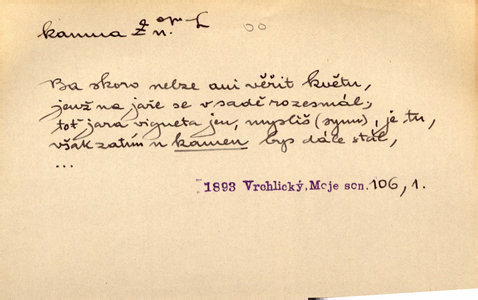 kamna
Ba skoro nelze ani věřit květu,
jenž na jaře se v sadě rozesmál;
toť jara vigneta jen, myslíš (synu), je tu,
však zatím u kamen bys dále stál,
...
1893 Vrchlický, Moje son. 106, 1.